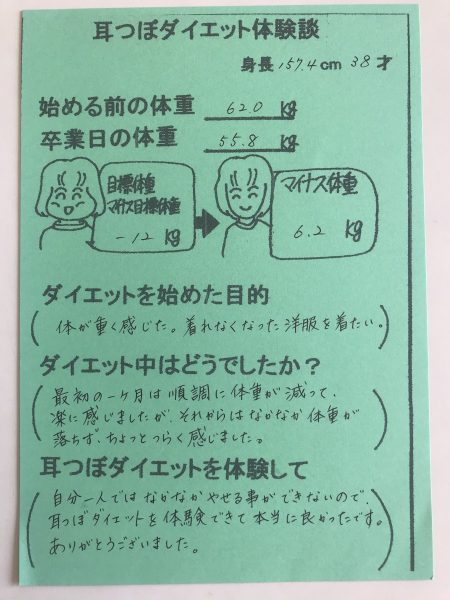 耳つぼダイエット体験談
身長 157.4cm 38才
始める前の体重 62.0 kg
卒業日の体重 55.8 kg
目標体重
マイナス目標体重
-12 kg
マイナス体重
6.2 kg
ダイエットを始めた目的
体が重く感じた。着れなくなった洋服を着たい。
ダイエット中はどうでしたか？
最初の一ヶ月は順調に体重が減って、
楽に感じましたが、それからはなかなか体重が
落ちず、ちょっとつらく感じました。
耳つぼダイエットを体験して
自分一人ではなかなかやせる事ができないので、
耳つぼダイエットを体験できて本当に良かったです。
ありがとうございました。